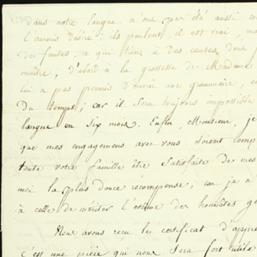 dans notre langue n'ont pas été aussi
l'avoir désiré: ils parlent, il est vrai, mais
des fautes, ce qui tient à des causes dont
maître, d'abord à la grossesse de Madame
lui a pas permis d'ouvrir une grammaire,
Du temps; car il sera toujours impossible
langue en six mois. Enfin, Monsieur, je
que mes engagemens avec vous soient
toute votre famille être satisfaite de mes
moi la plus douce recompense; car j'ai
à celle de mériter l'estime des honnêtes
Nous avons reçu le certificat
c'est une pièce qui nous sera fort utile